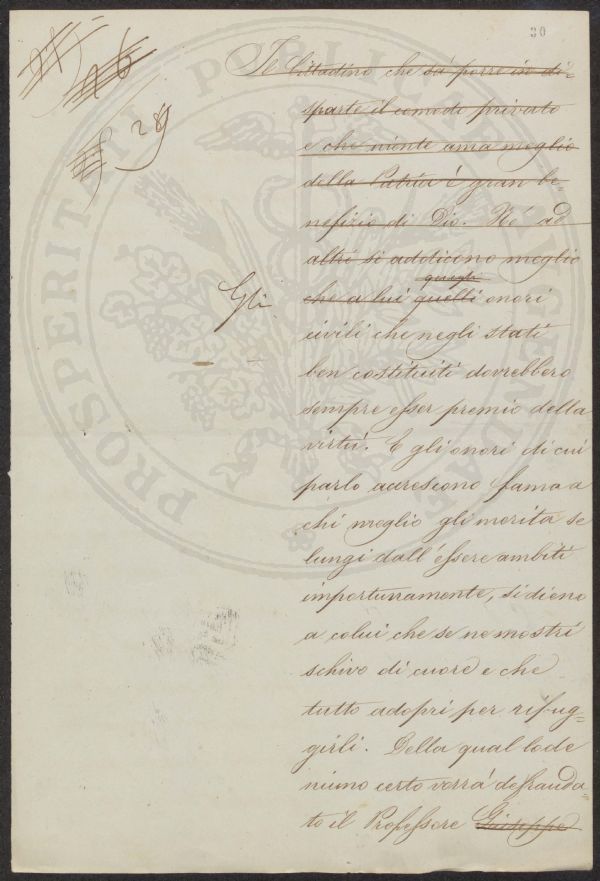 30
26
29
Il Cittadino che sa porre in di-
sparte il comodo privato
e che niente ama meglio
della Patria è gran be-
nefizio di Dio. Nè ad
altri si addicono meglio
quegli
che a lui quelli onori
Gli
civili che negli stati
ben costituiti dovrebbero
sempre esser premio della
virtù. E gli onori di cui
parlo accrescono fama a
chi meglio gli merita se
lungi dall'essere ambiti
importunamente, si dieno
a colui che se ne mostri
schivo di cuore e che
tutto adopri per rifug-
girli. Della qual lode
niuno certo vorrà defrauda-
to il Professore Giuseppe
PROSPERITATI PUBLICAE AUGENDAE